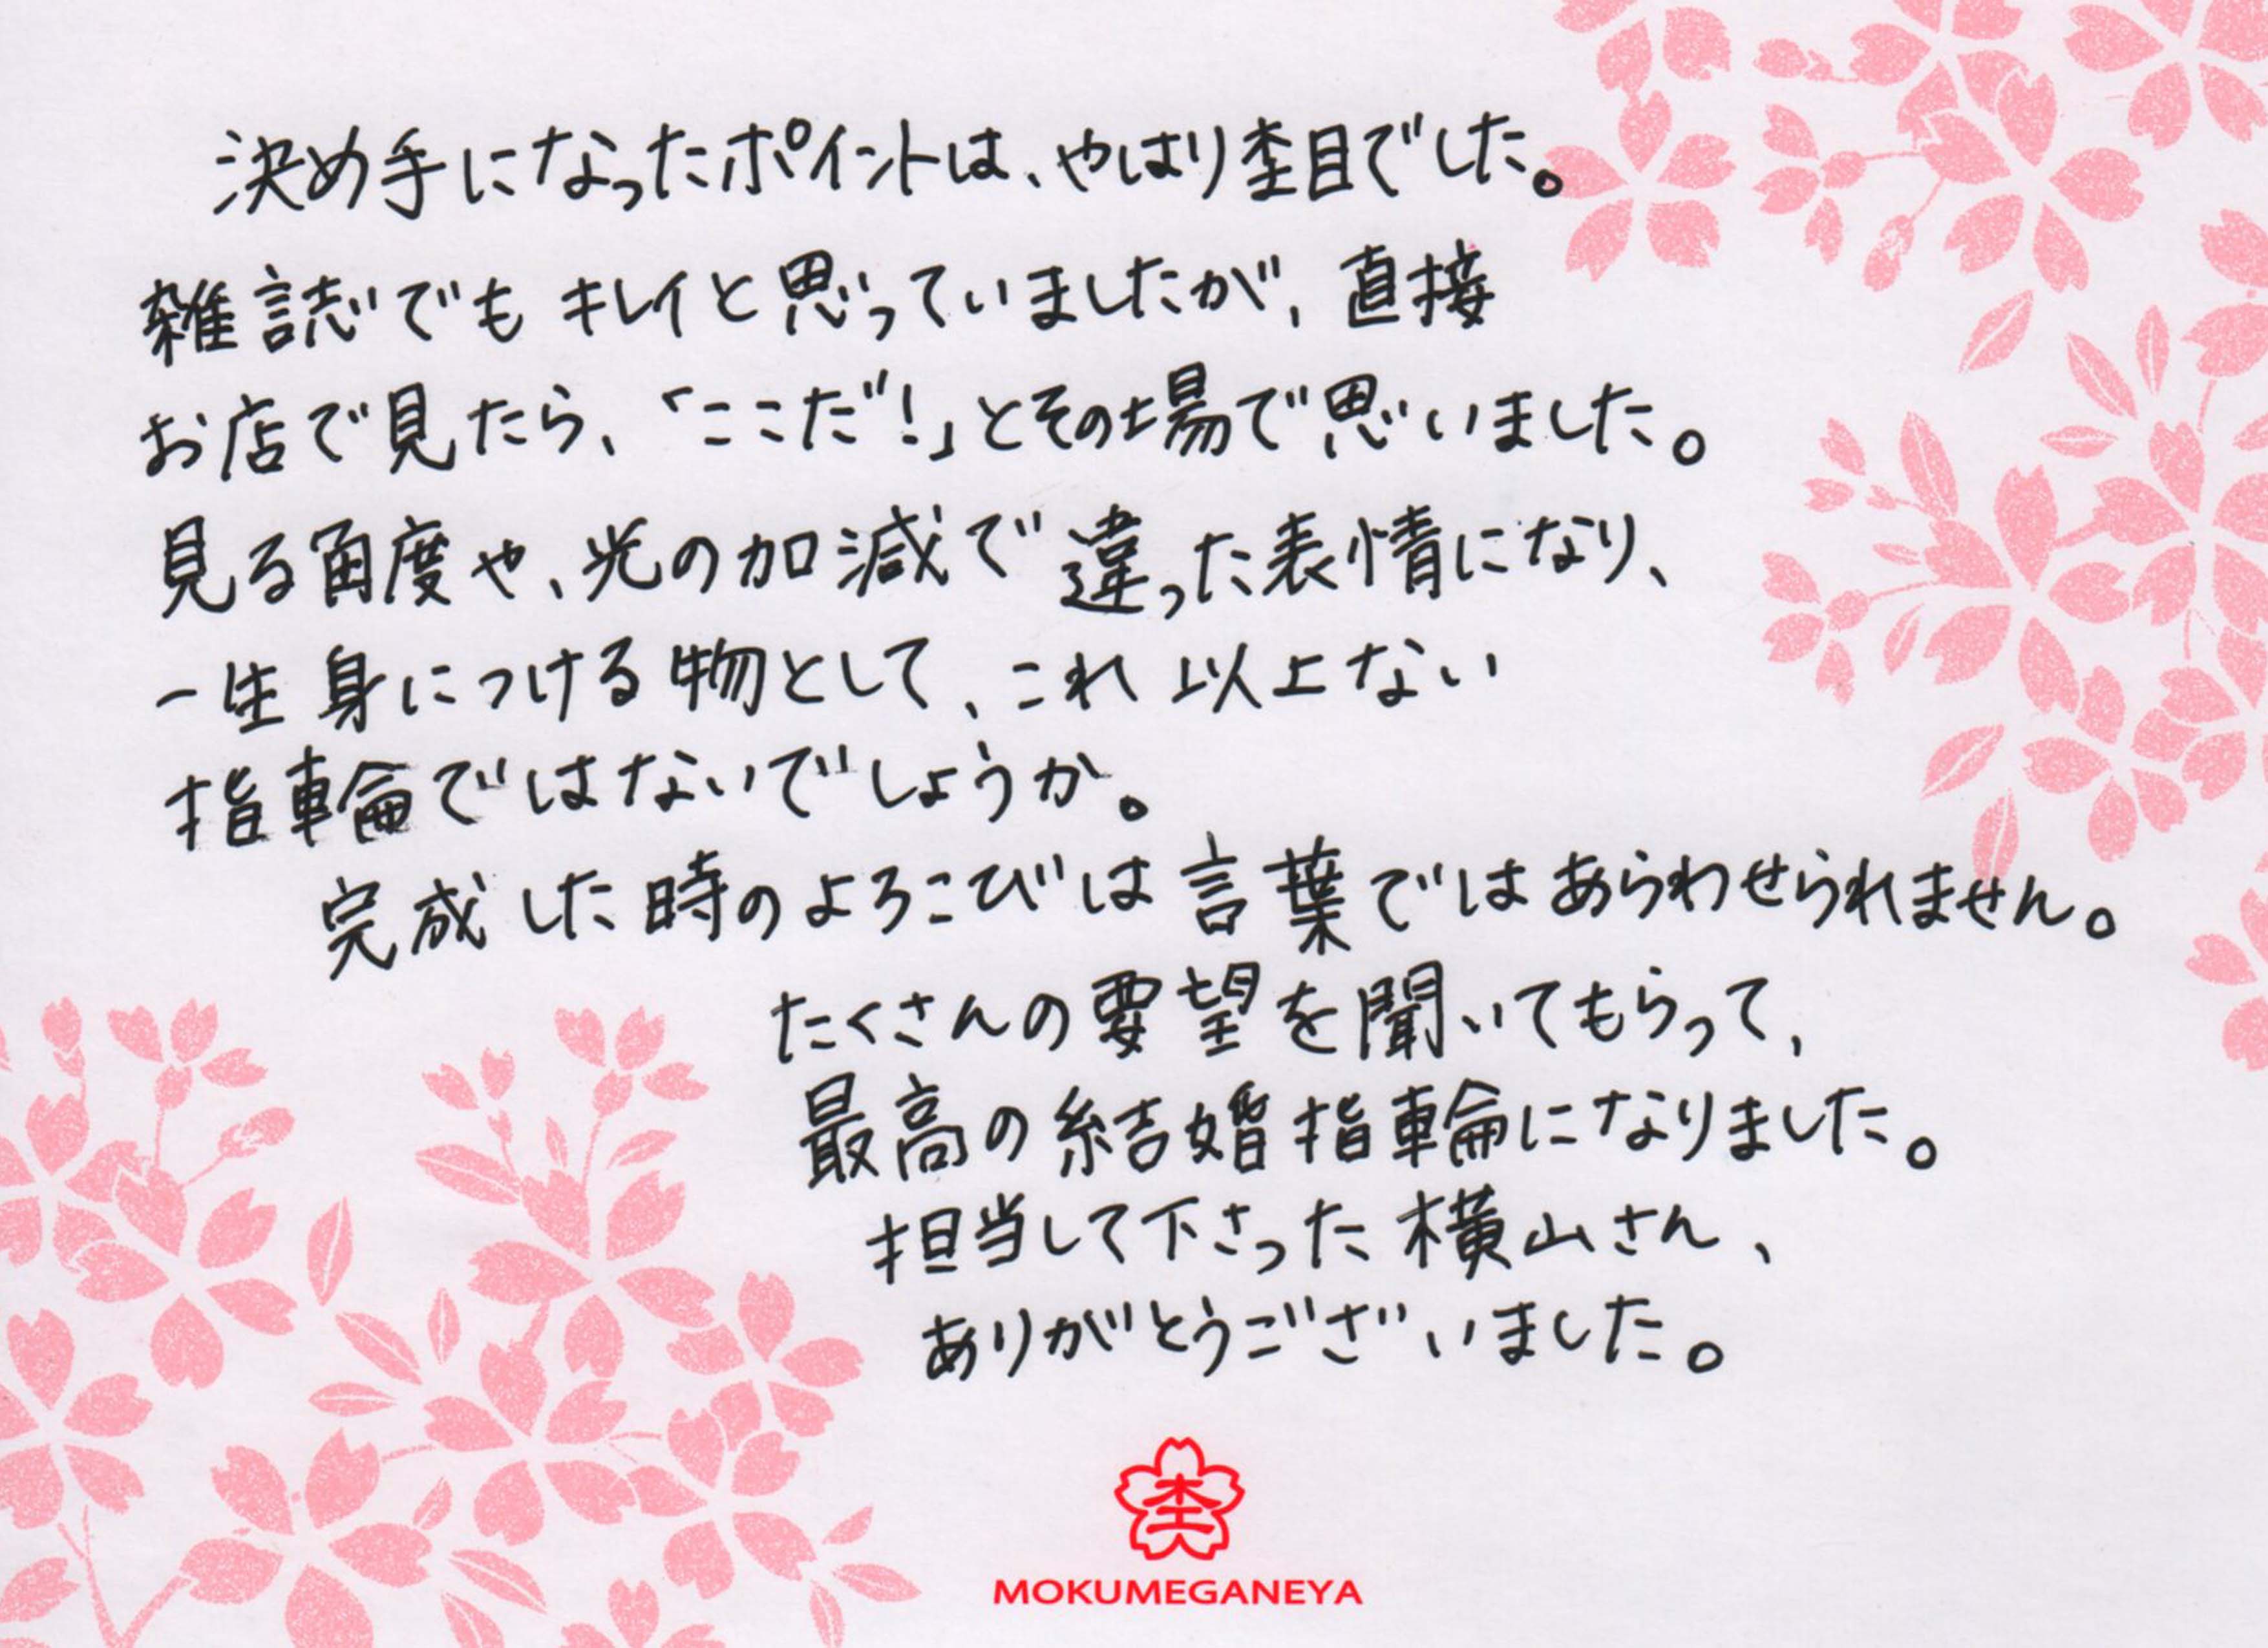 決め手になったポイントは、やはり杢目でした。
雑誌でもキレイと思っていましたが、直接
お店で見たら、「ここだ!」とその場で思いました。
見る角度や、光の加減で違った表情になり、
一生身につける物として、これ以上ない
指輪ではないでしょうか。
完成した時のよろこびは言葉ではあらわせられません。
たくさんの要望を聞いてもらって、
最高の結婚指輪になりました。
担当して下さった横山さん、
ありがとうございました。
杢
MOKUMEGANEYA